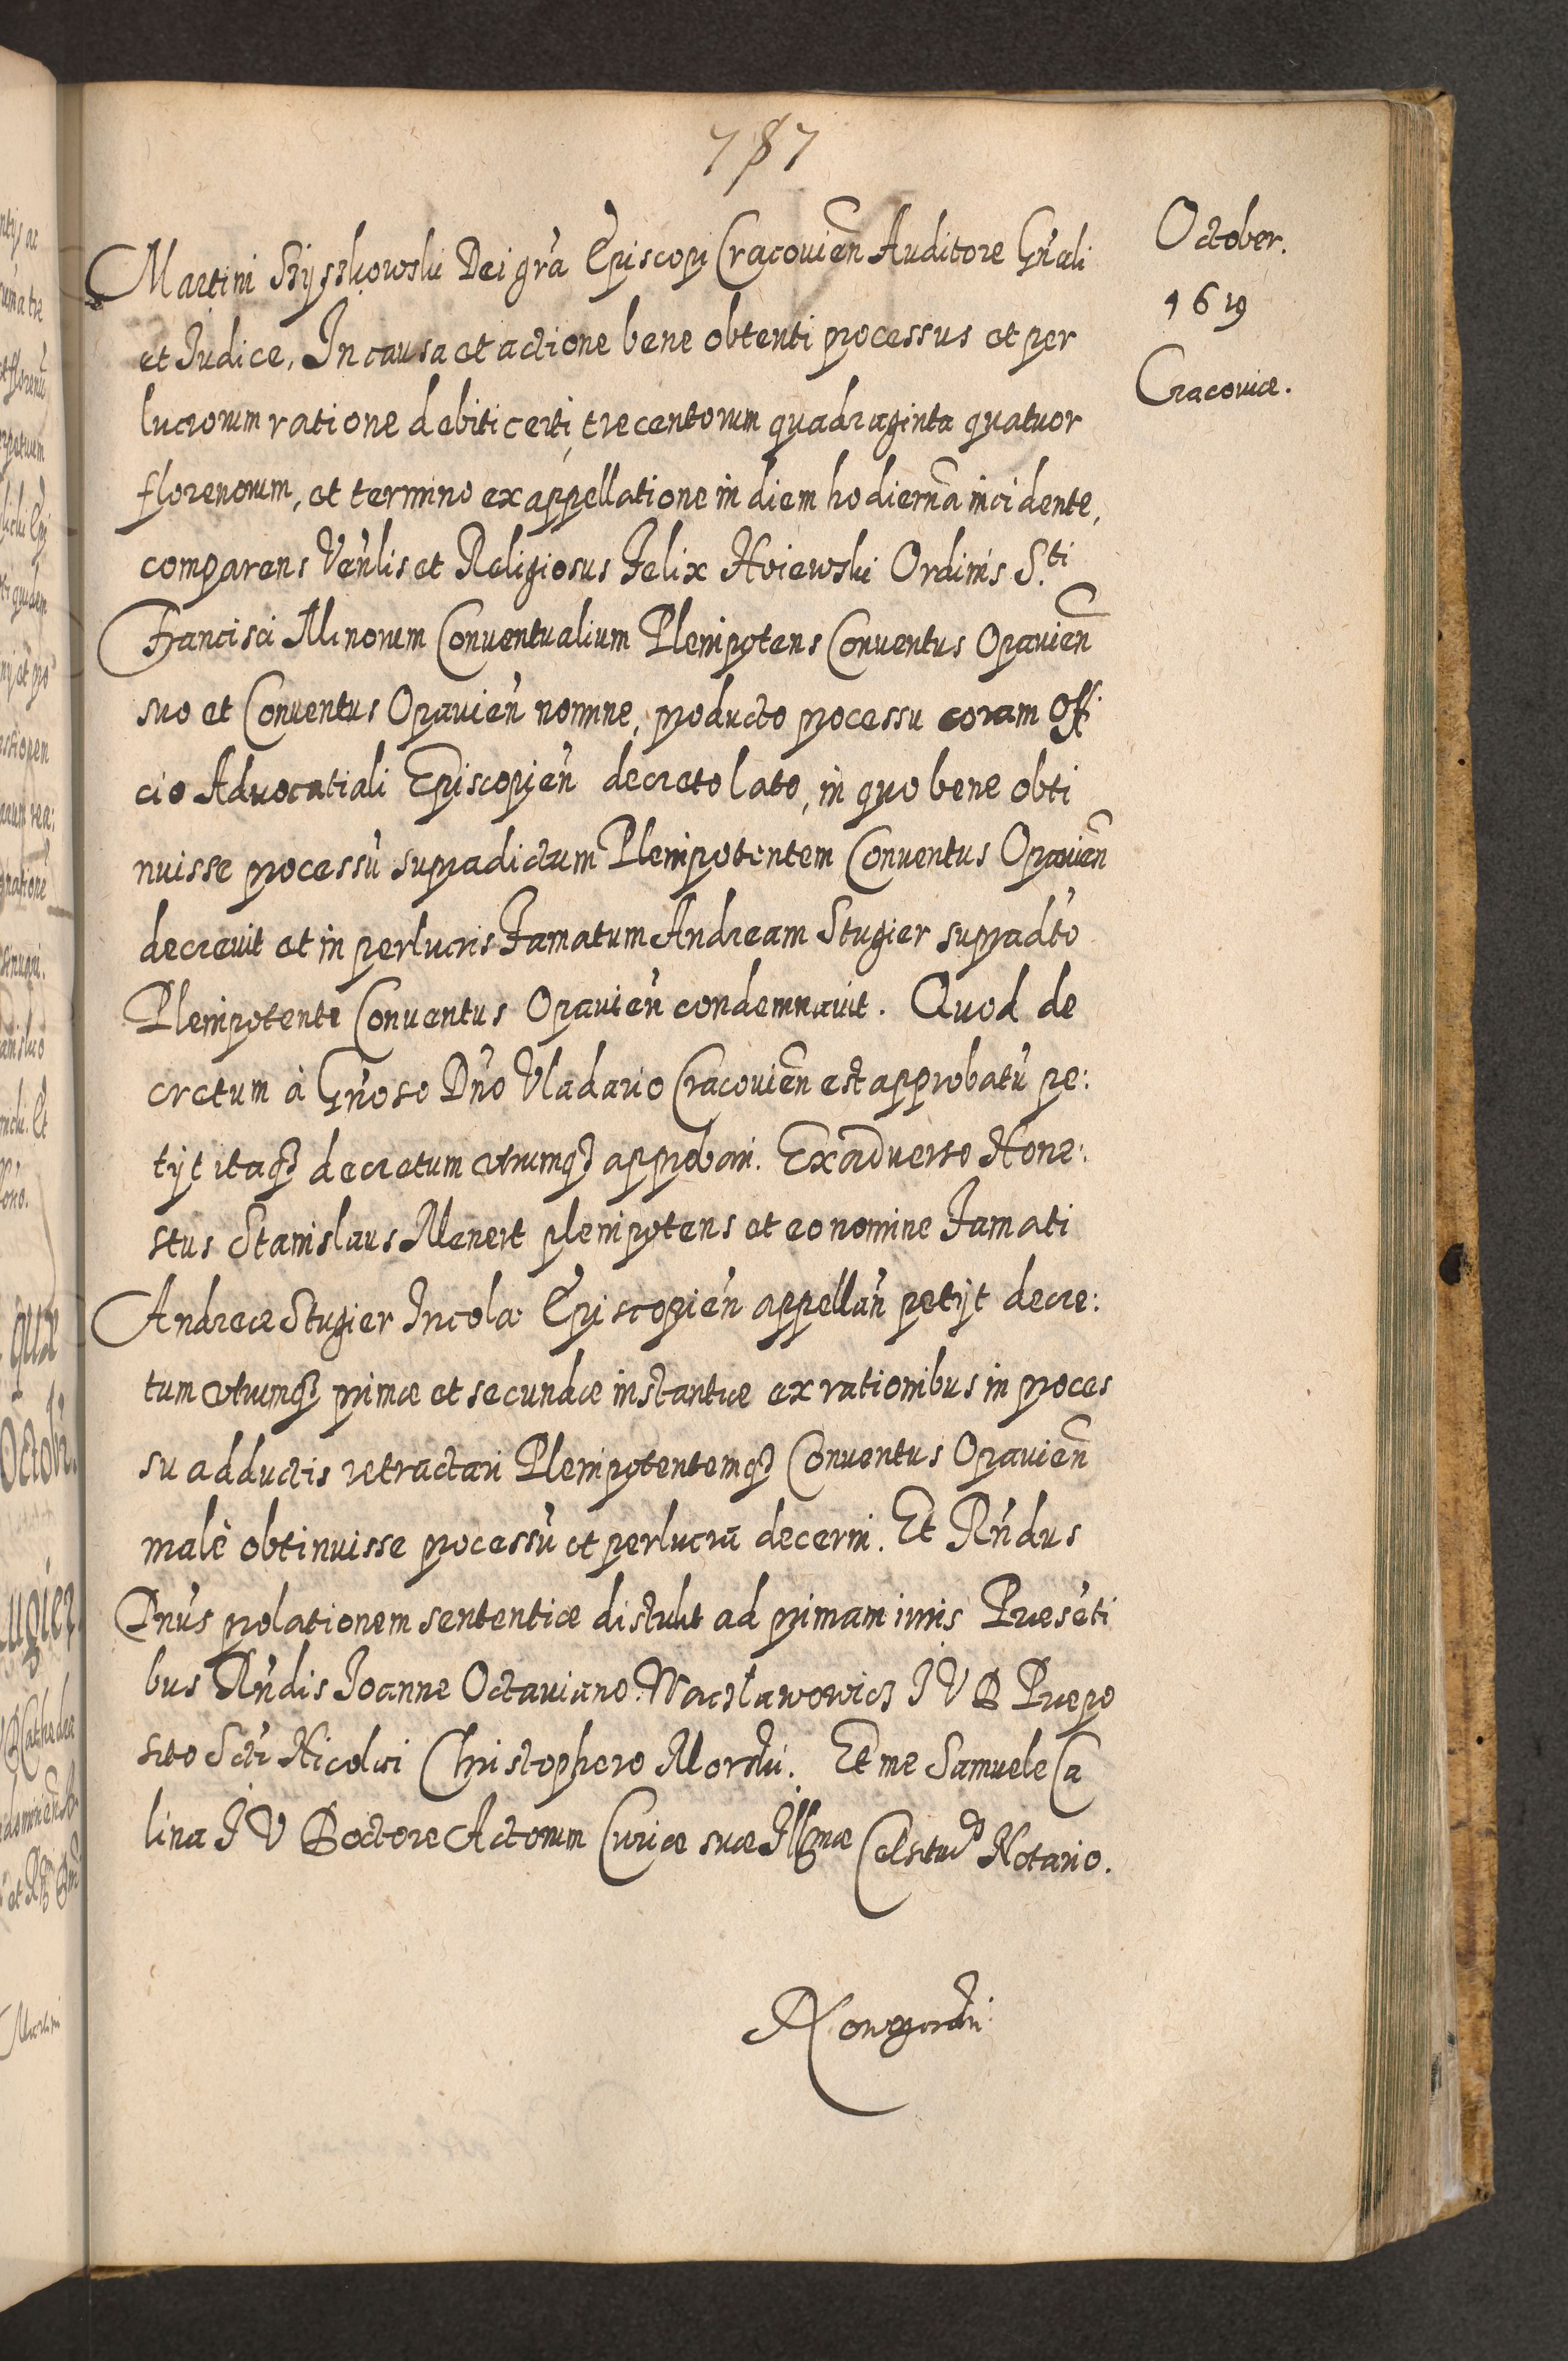 787
October.
1619
Cracoviæ.
Martini Szyszkowski Dei grã Episcopi Cracovień Auditore Gñali
et Iudice, In causa et actione bene obtenti processus et per
lucrorum ratione debiti certi, trecentorum quadraginta quatuor
florenorum, et termino ex appellatione in diem hodiernã incidente,
comparens Veńlis et Religiosus Felix Kviewski Ordinis S.ti
Francisci Minorum Conventualium Plenipotens Conventus Opavień
suo et Conventus Opavień nomine, producto processu coram Offi
cio Advocatiali Episcopień decreto lato, in quo bene obti
nuisse processũ supradictum Plenipotentem Conventus Opavień
decrevit et in perlucris Famatum Andream Stugier supradto
Plenipotenti Conventus Opavień condemnavit. Quod de
cretum à Gñoso Dño Vladario Cracovień est approbatũ pe:
tijt itaq3 decretum utrumq3 approbari. Ex adverso Hone:
stus Stanislaus Menert plenipotens et eo nomine Famati
Andreæ Stugier Incolæ Episcopień appellań petijt decre:
tum utrumq3 primæ et secundæ instantiæ ex rationibus in proces
su adductis retractari Plenipotentemq3 Conventus Opavień
malè obtinuisse processũ et perlucra decerni. Et Rńdus
Dńus prolationem sententiæ distulit ad primam iuris Præséti
bus Rńdis Ioanne Octaviano Wacławowicz I V D Præpo
sito Scti Nicolai Christophoro Morski. Et me Samuele Ca
lina I V Doctore Actorum Curiæ suæ Illmæ Celsitud Notario.